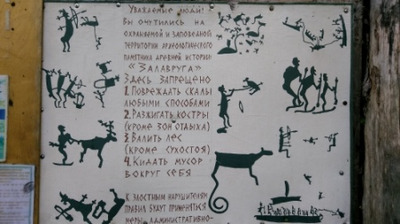 Уважаемые люди!
Вы очутились на
охраняемой и заповедной
территории археологического
памятника древней истории
"Залавруга"
Здесь запрещено
1. Повреждать скалы
любыми способами
2. Разжигать костры
(кроме зон отдыха)
3. Валить лес
(кроме сухостоя)
4. Кидать мусор
вокруг себя
К злостным нарушителям
правил будут применяться
меры административно-